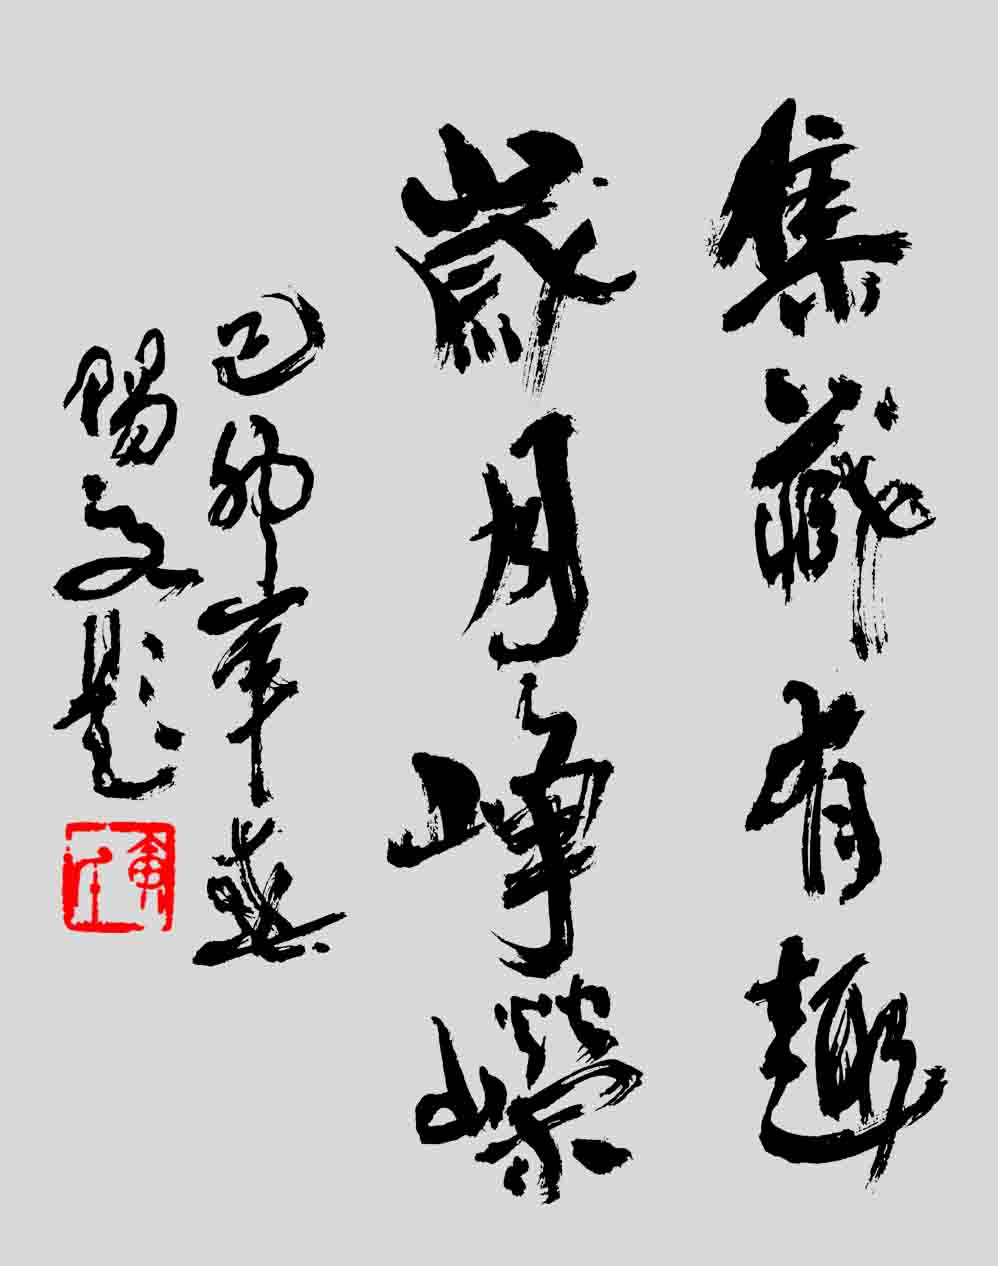 集藏有趣
歲月峥嶸
己卯年春
陽文題